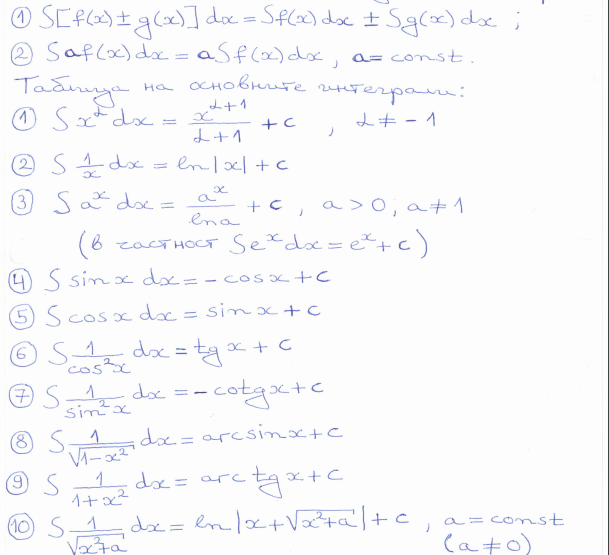 ① ∫[f(x) ± g(x)] dx = ∫f(x) dx ± ∫g(x) dx ;
② ∫af(x) dx = a∫f(x) dx , a = const.
Таблица на основните интеграли:
① ∫x^α dx = x^(α+1)/(α+1) + c , α ≠ -1
② ∫ 1/x dx = ln|x| + c
③ ∫a^x dx = a^x/ln a + c , a > 0, a ≠ 1
(в частност ∫e^x dx = e^x + c)
④ ∫ sin x dx = - cos x + c
⑤ ∫ cos x dx = sin x + c
⑥ ∫ 1/cos²x dx = tg x + c
⑦ ∫ 1/sin²x dx = - cotg x + c
⑧ ∫ 1/√(1-x²) dx = arcsin x + c
⑨ ∫ 1/(1+x²) dx = arctg x + c
⑩ ∫ 1/√(x²+a) dx = ln|x + √(x²+a)| + c , a = const
(a ≠ 0)